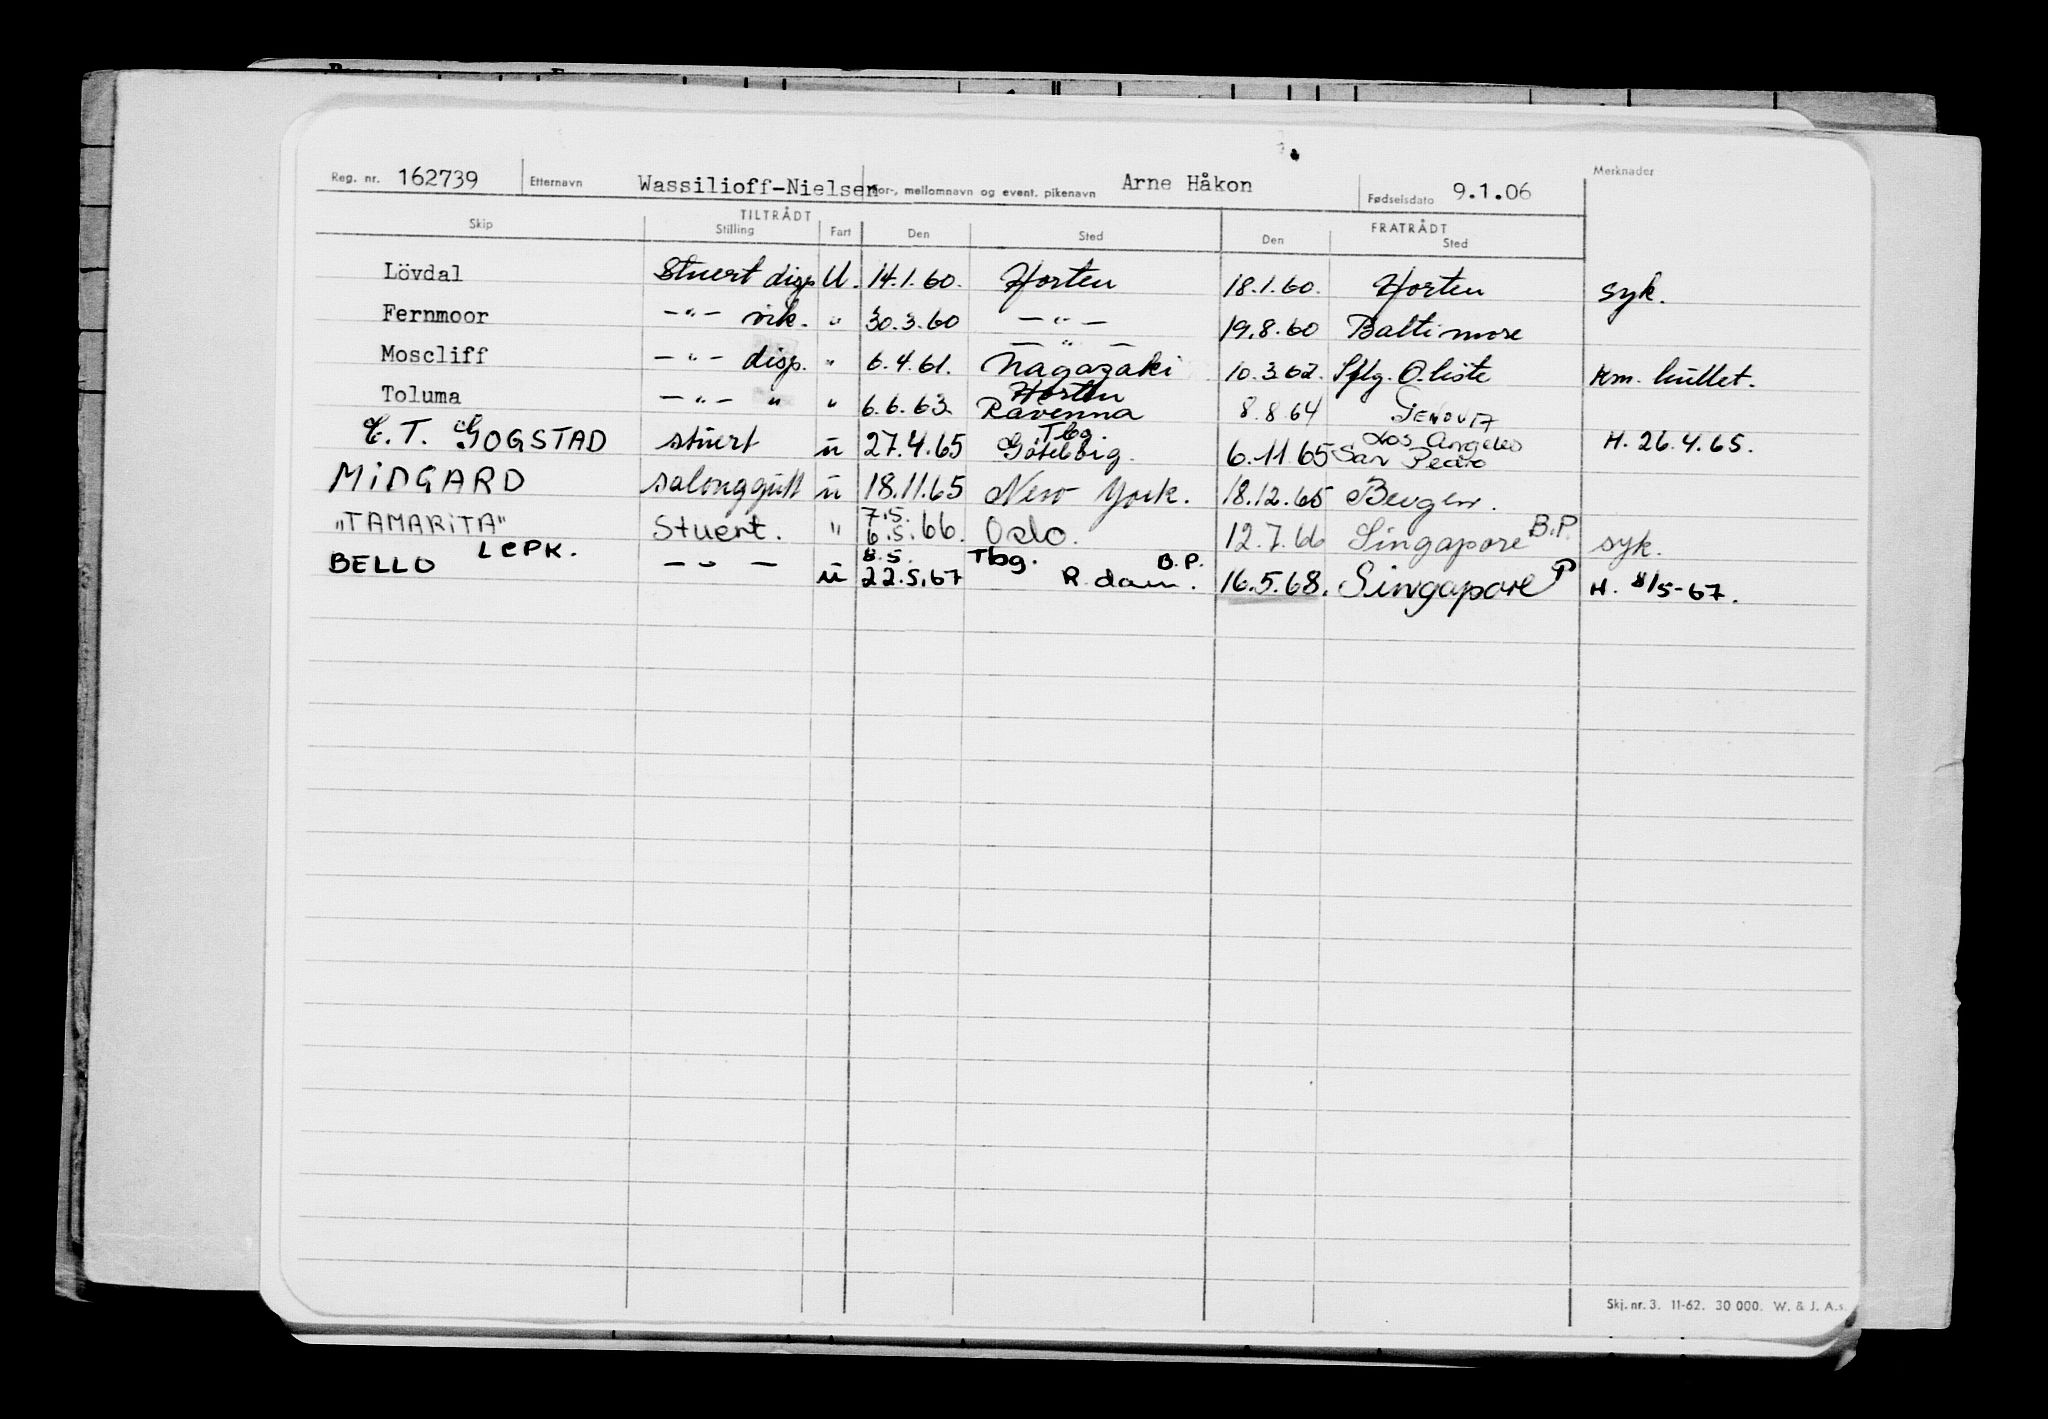 Reg. nr. 162739 Etternavn Wassilioff-Nielsen For-, mellomnavn og event. pikenavn Arne Håkon Fødselsdato 9.1.06 Merknader
TILTRÅDT FRATRÅDT
Skip Stilling Fart Den Sted Den Sted
Lövdal Stuert disp U. 14.1.60. Horten 18.1.60. Horten syk.
Fernmoor -"- vik. " 30.3.60 -"- 19.8.60 Baltimore
-"-
Moscliff -"- disp. " 6.4.61. Nagazaki 10.3.62. Sflg. O.liste Km. hullet.
Horten
Toluma -"- " " 6.6.63. Ravenna 8.8.64 GENOVA
Tbg Los Angeles
C.T. GOGSTAD stuert u 27.4.65 Göteborg. 6.11.65 San Pedro H. 26.4.65.
MIDGARD salonggutt u 18.11.65 New York. 18.12.65 Bergen.
7.5.
"TAMARITA" Stuert. " 6.5.66. Oslo. 12.7.66 Singapore B.P. syk.
LCPK. 8.5. Tbg. B.P.
BELLO -"- u 22.5.67 R.dam. 16.5.68. Singapore P H. 8/5-67.
Skj. nr. 3. 11-62. 30 000. W. & J. A.s.